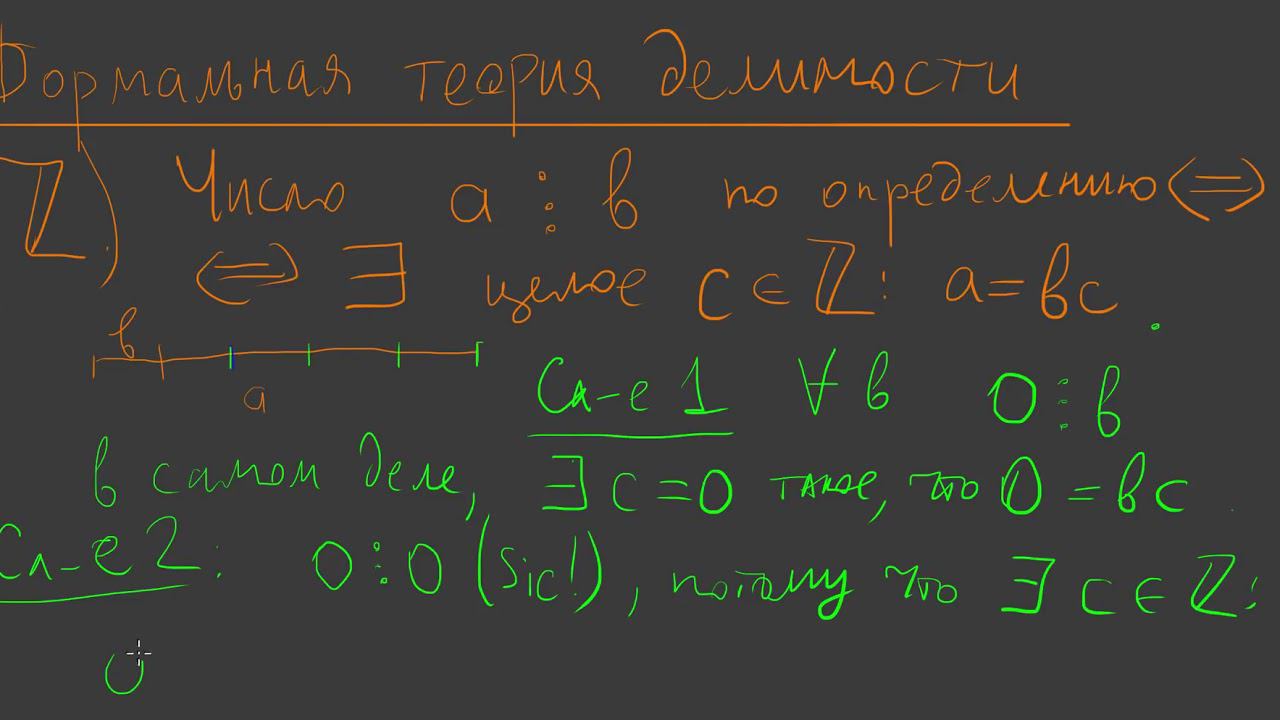 Формальная теория делимости
ℤ) Число a ⋮ b по определению ⟺
⟺ ∃ целое c ∈ ℤ: a = bc
b
a
Сл-е 1 ∀ b 0 ⋮ b
в самом деле, ∃ c = 0 такое, что 0 = bc.
Сл-е 2: 0 ⋮ 0 (Sic!), потому что ∃ c ∈ ℤ: